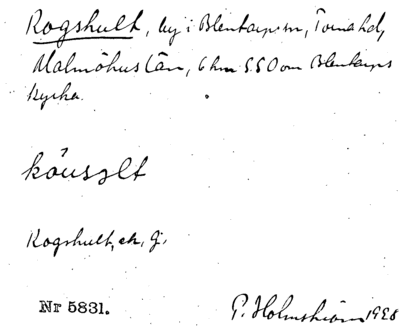 Rogshult, by i Blentarps sn, Torna hd,
Malmöhus län, 6 km SSO om Blentarps
kyrka.
Rogshult, ek. Gj.
Nr 5831.
P. Holmström 1928